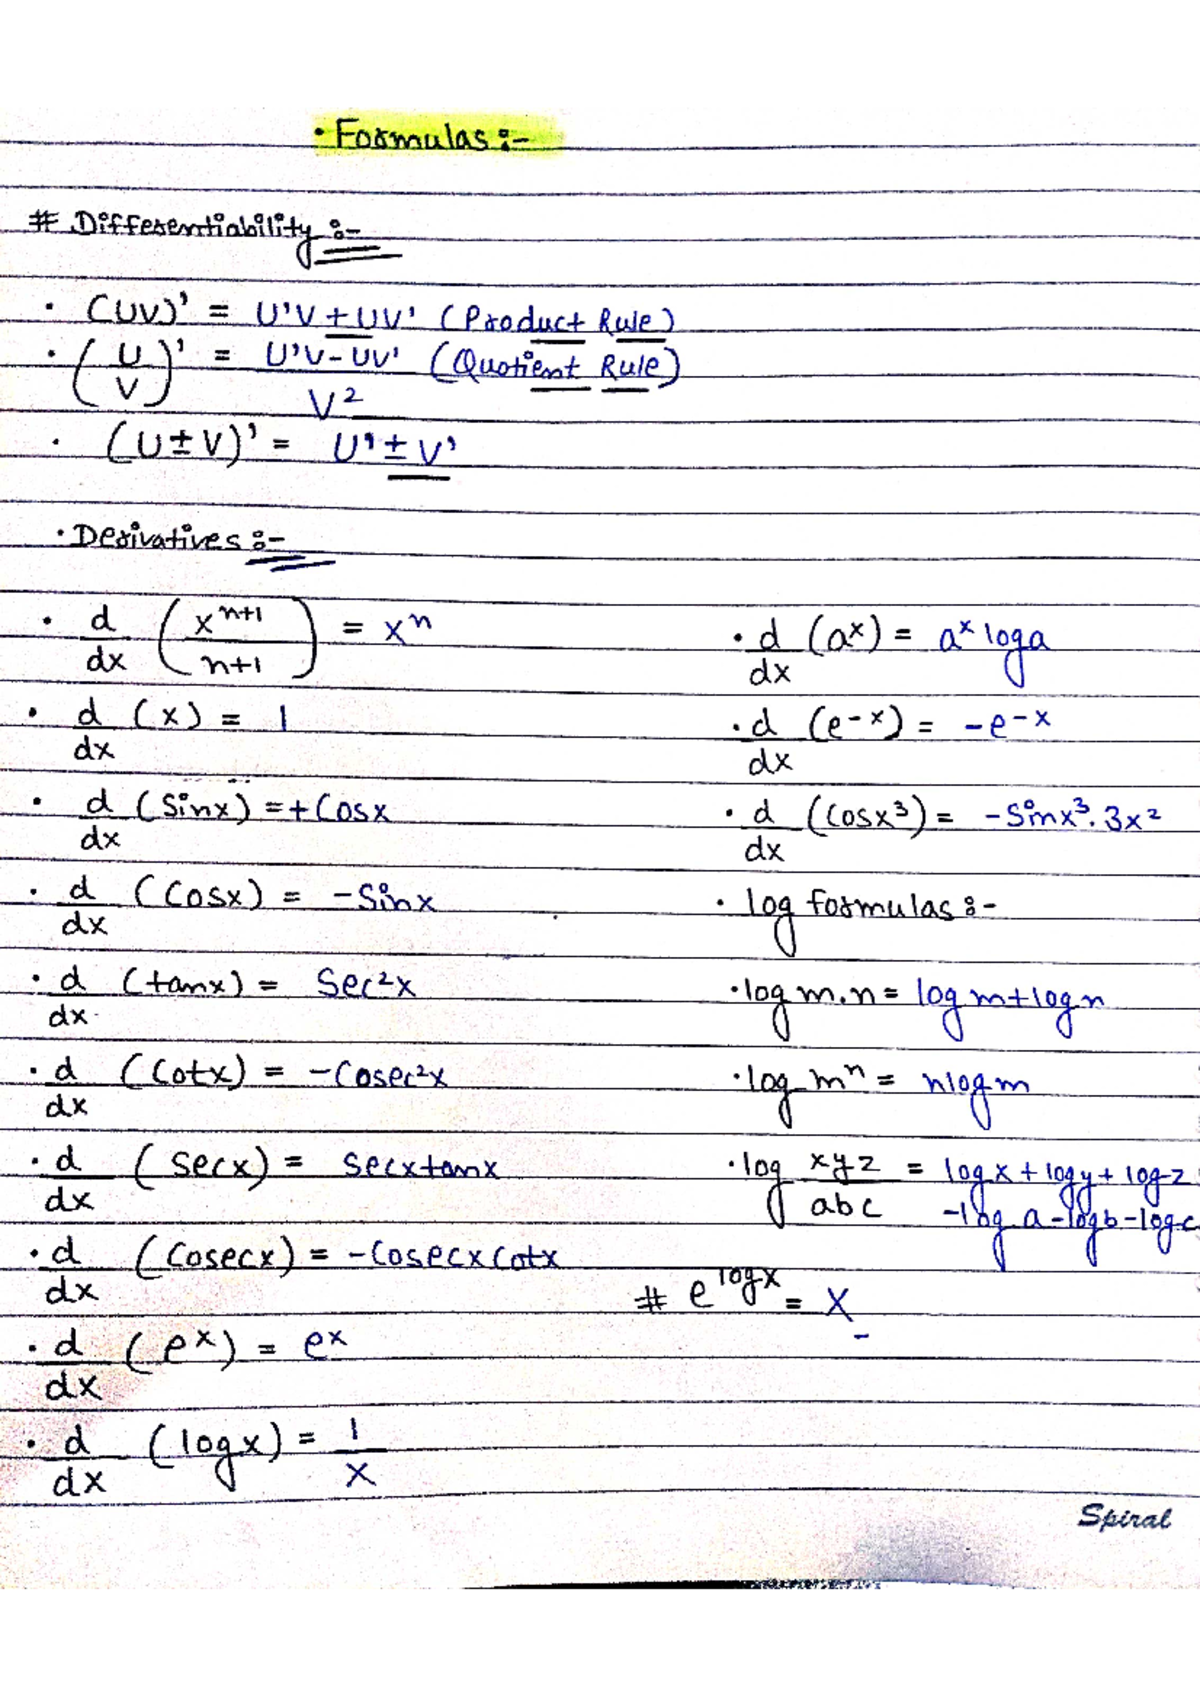 • Formulas :-
# Differentiability :-
• (UV)' = U'V + UV' (Product Rule)
• (U/V)' = U'V - UV' / V² (Quotient Rule)
• (U ± V)' = U' ± V'
• Derivatives :-
• d/dx (xⁿ⁺¹/n+1) = xⁿ
• d/dx (x) = 1
• d/dx (Sinx) = + Cosx
• d/dx (Cosx) = - Sinx
• d/dx (tanx) = Sec²x
• d/dx (Cotx) = - Cosec²x
• d/dx (Secx) = Secxtanx
• d/dx (Cosecx) = - Cosecx Cotx
• d/dx (eˣ) = eˣ
• d/dx (logx) = 1/x
• d/dx (aˣ) = aˣ loga
• d/dx (e-x) = - e-x
• d/dx (Cosx³) = - Sinx³. 3x²
• log formulas :-
• log m.n = log m + log n
• log mⁿ = nlog m
• log xyz/abc = logx + logy + logz
- log a - logb - logc
# e^logx = x
Spiral